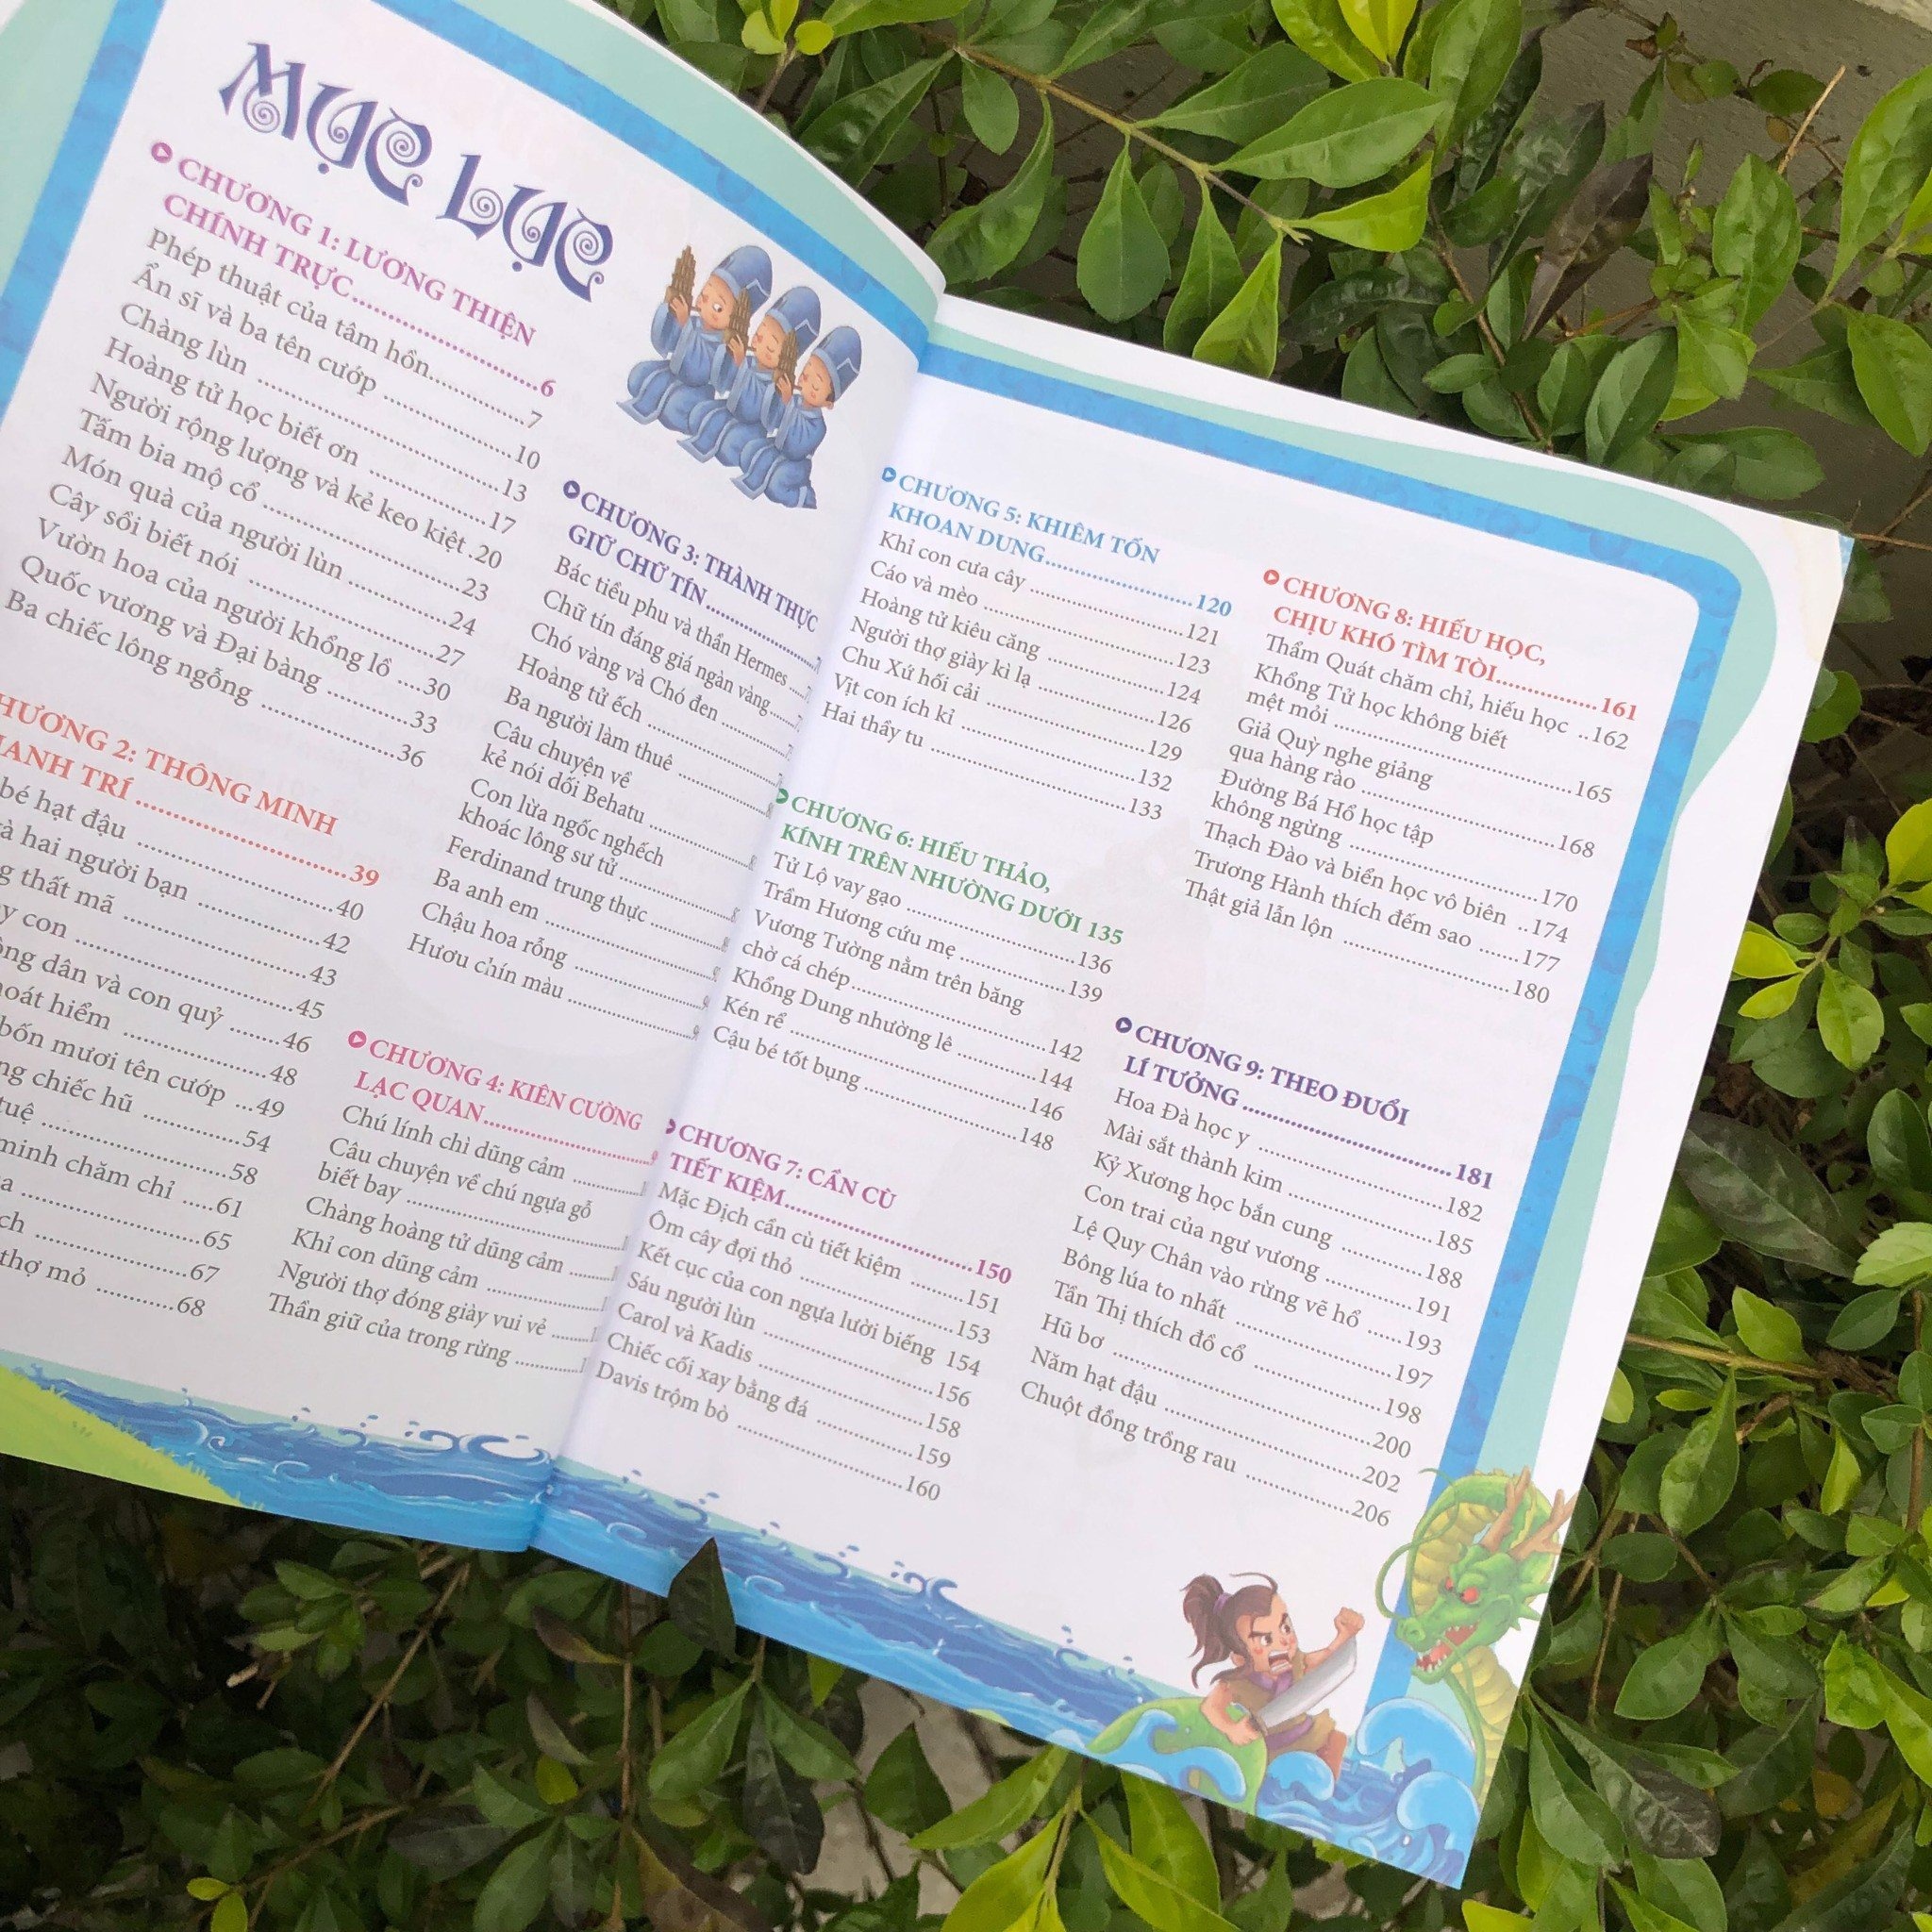 MỤC LỤC
CHƯƠNG 1: LƯƠNG THIỆN
CHÍNH TRỰC....................6
Phép thuật của tâm hồn..............7
Ẩn sĩ và ba tên cướp ....................10
Chàng lùn ....................13
Hoàng tử học biết ơn ....................17
Người rộng lượng và kẻ keo kiệt .20
Tấm bia mộ cổ ....................23
Món quà của người lùn ....................24
Cây sồi biết nói ....................27
Vườn hoa của người khổng lồ ....30
Quốc vương và Đại bàng ...........33
Ba chiếc lông ngỗng ....................36
2: THÔNG MINH
TRÍ ....................39
bé hạt đậu ....................40
hai người bạn ....................42
thất mã ....................43
con ....................45
dân và con quỷ ........46
hiểm ....................48
bốn mươi tên cướp ...49
chiếc hũ ....................54
....................58
minh chăm chỉ .....61
....................65
....................67
thợ mỏ ............68
CHƯƠNG 3: THÀNH THỰC
GIỮ CHỮ TÍN....................
Bác tiều phu và thần Hermes ....
Chữ tín đáng giá ngàn vàng......
Chó vàng và Chó đen ............
Hoàng tử ếch ....................
Ba người làm thuê ....................
Câu chuyện về
kẻ nói dối Behatu ....................
Con lừa ngốc nghếch
khoác lông sư tử ....................
Ferdinand trung thực ..............
Ba anh em ....................
Chậu hoa rỗng ....................
Hươu chín màu ....................
CHƯƠNG 4: KIÊN CƯỜNG
LẠC QUAN....................
Chú lính chì dũng cảm ............
Câu chuyện về chú ngựa gỗ
biết bay ....................
Chàng hoàng tử dũng cảm ........
Khỉ con dũng cảm ....................
Người thợ đóng giày vui vẻ ........
Thần giữ của trong rừng ............
CHƯƠNG 5: KHIÊM TỐN
KHOAN DUNG....................120
Khỉ con cưa cây ....................121
Cáo và mèo ....................123
Hoàng tử kiêu căng ....................124
Người thợ giày kì lạ ....................126
Chu Xứ hối cải ....................129
Vịt con ích kỉ ....................132
Hai thầy tu ....................133
CHƯƠNG 6: HIẾU THẢO,
KÍNH TRÊN NHƯỜNG DƯỚI 135
Tử Lộ vay gạo ....................136
Trầm Hương cứu mẹ ..............139
Vương Tường nằm trên băng
chờ cá chép....................142
Khổng Dung nhường lê ...........144
Kén rể ....................146
Cậu bé tốt bụng ....................148
CHƯƠNG 7: CẦN CÙ
TIẾT KIỆM....................150
Mặc Địch cần cù tiết kiệm .........151
Ôm cây đợi thỏ ....................153
Kết cục của con ngựa lười biếng 154
Sáu người lùn ....................156
Carol và Kadis ....................158
Chiếc cối xay bằng đá ............159
Davis trộm bò ....................160
CHƯƠNG 8: HIẾU HỌC,
CHỊU KHÓ TÌM TÒI...............161
Thẩm Quát chăm chỉ, hiếu học ..162
Khổng Tử học không biết
mệt mỏi ....................165
Giả Quỳ nghe giảng
qua hàng rào ....................168
Đường Bá Hổ học tập
không ngừng ....................170
Thạch Đào và biển học vô biên ..174
Trương Hành thích đếm sao ......177
Thật giả lẫn lộn ....................180
CHƯƠNG 9: THEO ĐUỔI
LÍ TƯỞNG....................181
Hoa Đà học y ....................182
Mài sắt thành kim ....................185
Kỷ Xương học bắn cung ............188
Con trai của ngư vương ............191
Lệ Quy Chân vào rừng vẽ hổ ......193
Bông lúa to nhất ....................197
Tần Thị thích đồ cổ ....................198
Hũ bơ ....................200
Năm hạt đậu ....................202
Chuột đồng trồng rau ..............206